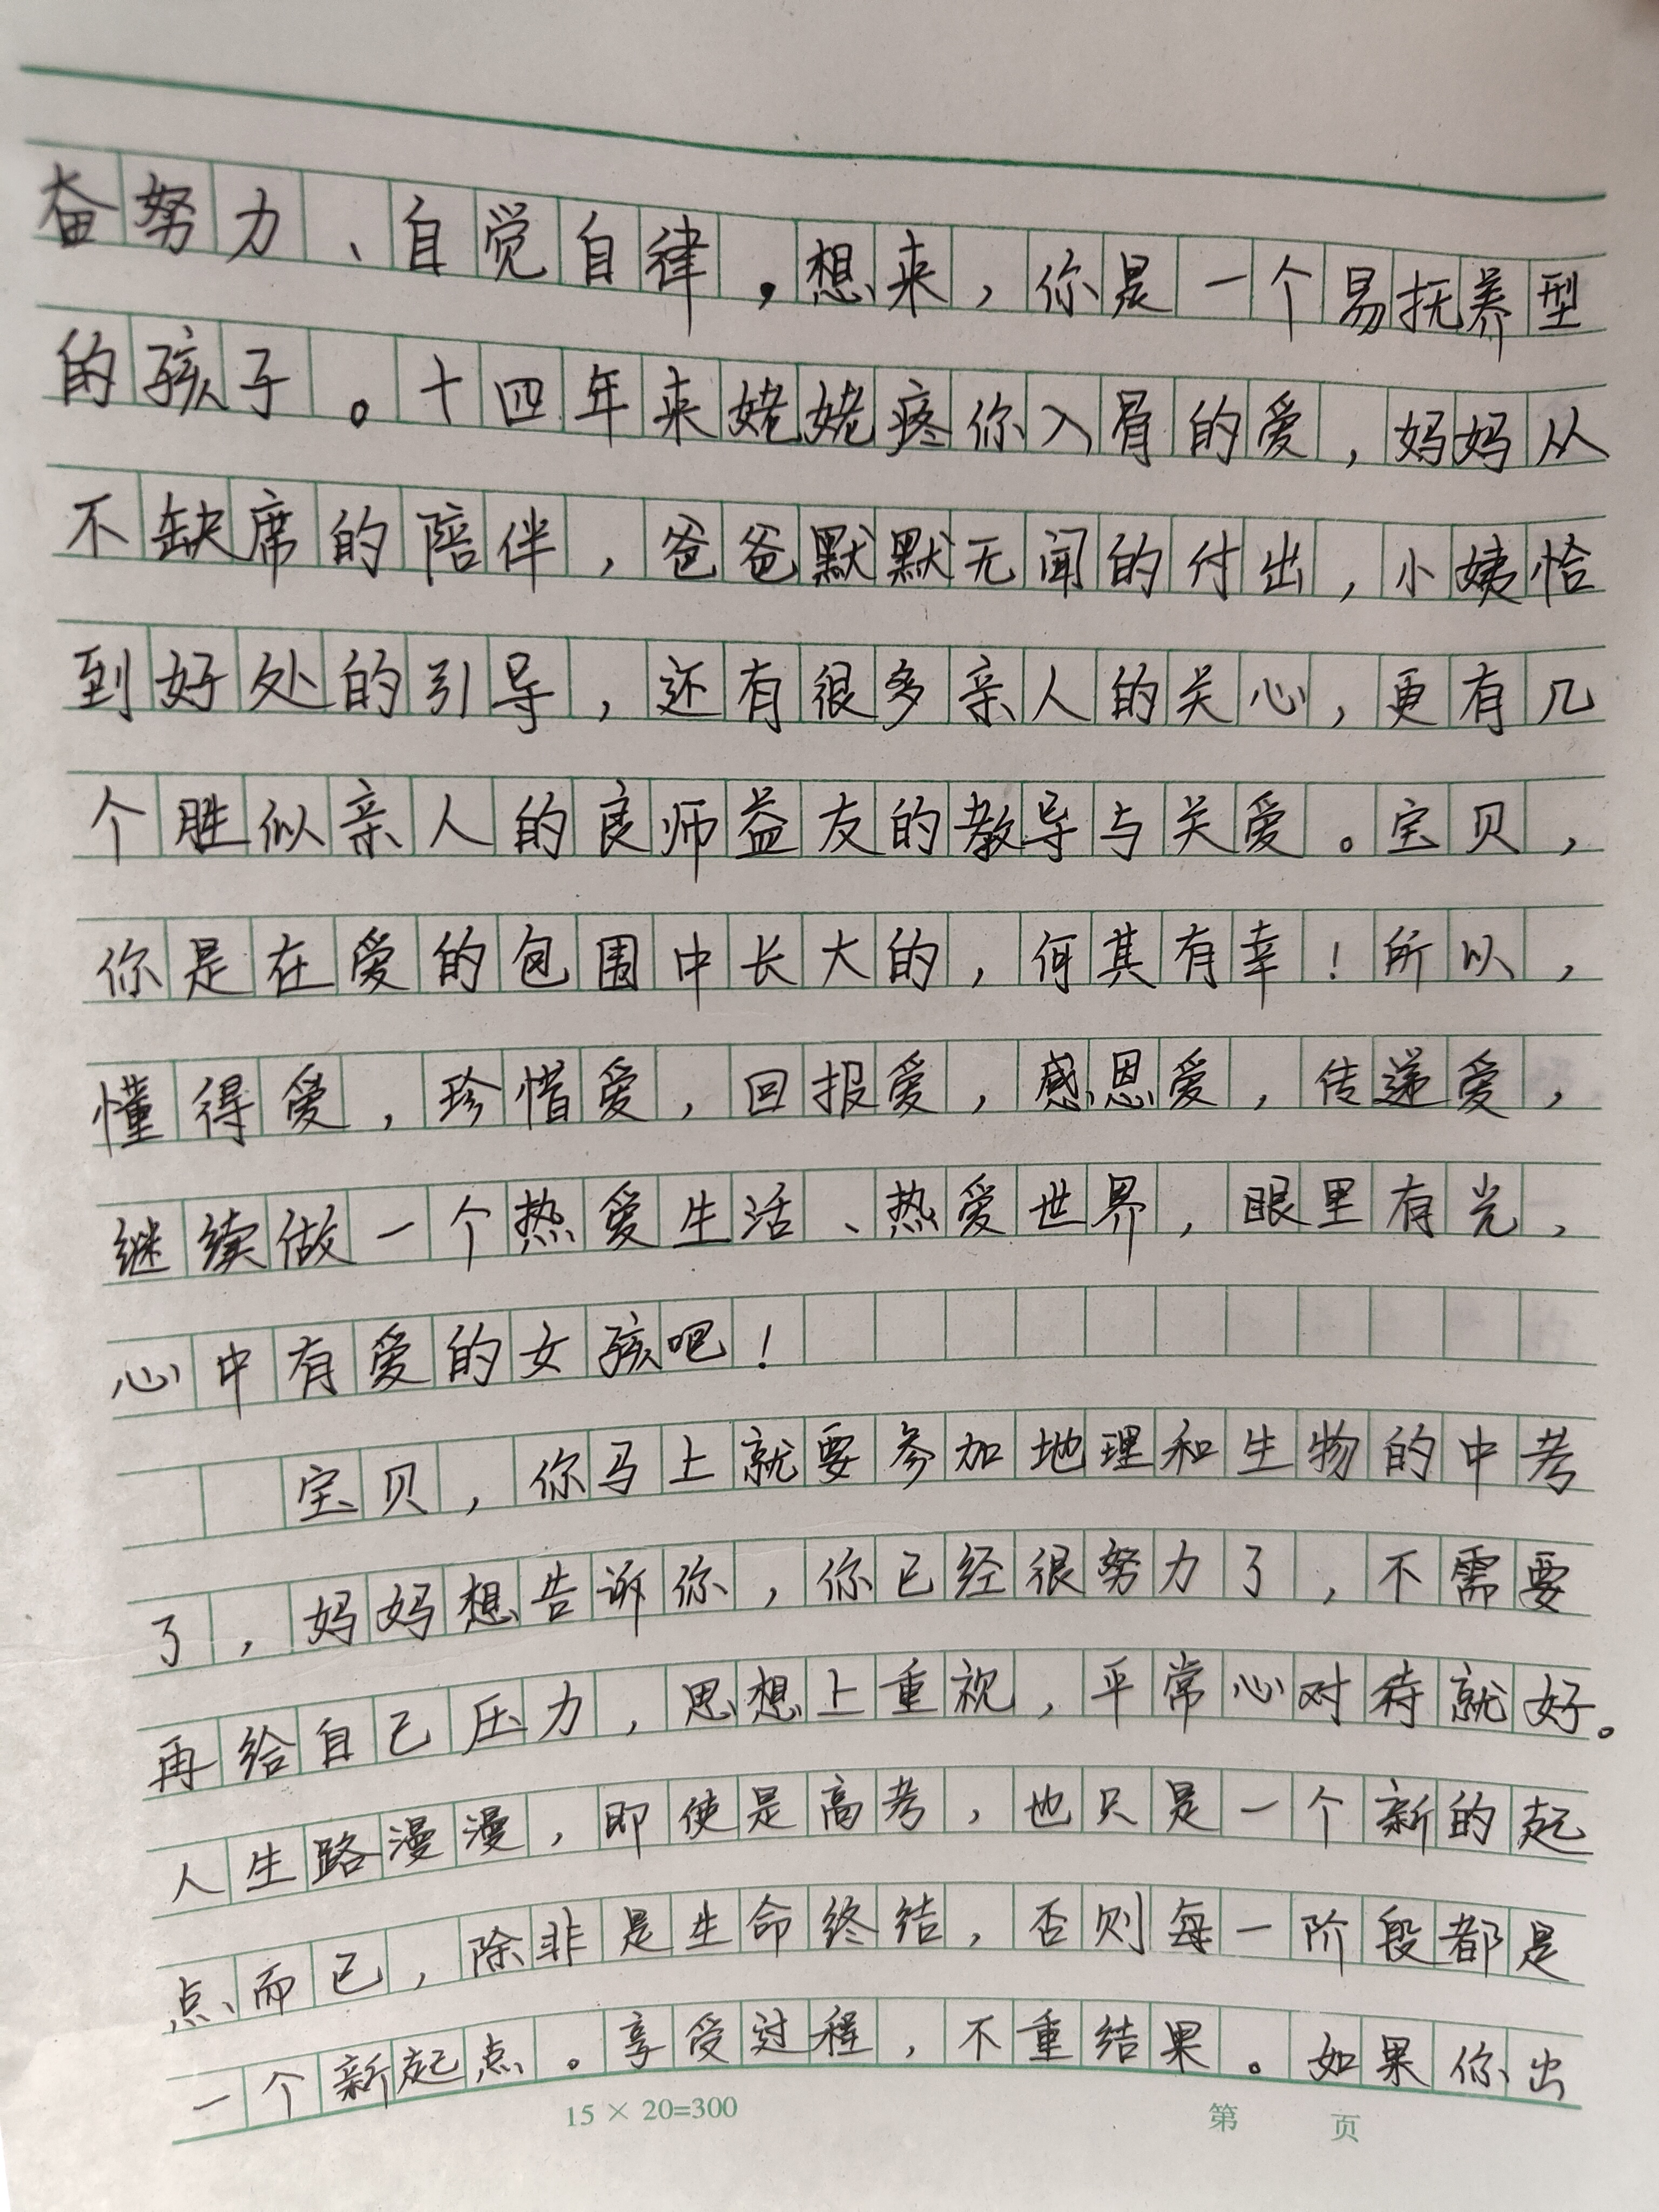 奋努力、自觉自律,想来,你是一个易抚养型
的孩子。十四年来姥姥疼你入骨的爱,妈妈从
不缺席的陪伴,爸爸默默无闻的付出,小姨恰
到好处的引导,还有很多亲人的关心,更有几
个胜似亲人的良师益友的教导与关爱。宝贝,
你是在爱的包围中长大的,何其有幸!所以,
懂得爱,珍惜爱,回报爱,感恩爱,传递爱,
继续做一个热爱生活、热爱世界,眼里有光,
心中有爱的女孩吧!
宝贝,你马上就要参加地理和生物的中考
了,妈妈想告诉你,你已经很努力了,不需要
再给自己压力,思想上重视,平常心对待就好。
人生路漫漫,即使是高考,也只是一个新的起
点而已,除非是生命终结,否则每一阶段都是
一个新起点。享受过程,不重结果。如果你出
15 × 20=300 第 页